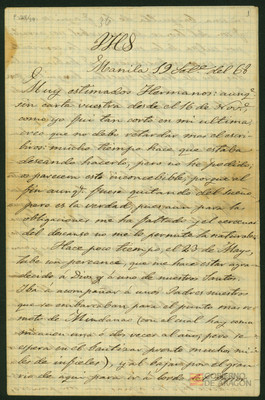 JHS
Manila 19 Set.e del 68
Muy estimados Hermanos: aunq.e
sin carta vuestra desde el 16 de Nov.e,
como yo fui tan corto en mi ultima,
creo que no debo retardar mas al escri-
biros: mucho tiempo hace que estaba
deseando hacerlo, pero no he podido,
os parecerá esto inconcebible, porque al
fin aunq.e fuera quitando del sueño
pero es la verdad, pues aun para las
obligaciones me ha faltado y el cercenar
del descanso no me lo permite la naturaleza
Hace poco tiempo, el 23 de Mayo,
tube un percance, que me hace estar agra-
decido á Dios y á uno de nuestros Santos.
Iba á acompañar á unos Padres nuestros
que se embarcaban para el punto mas re-
moto de Mindanao (con el cual hay comu-
nicacion una ó dos veces al año, pero se
espera en el Santisimo pronto muchos mi-
les de infieles), y al bajar por el
de aqui para ir á bordo
GOBIERNO
DE ARAGON